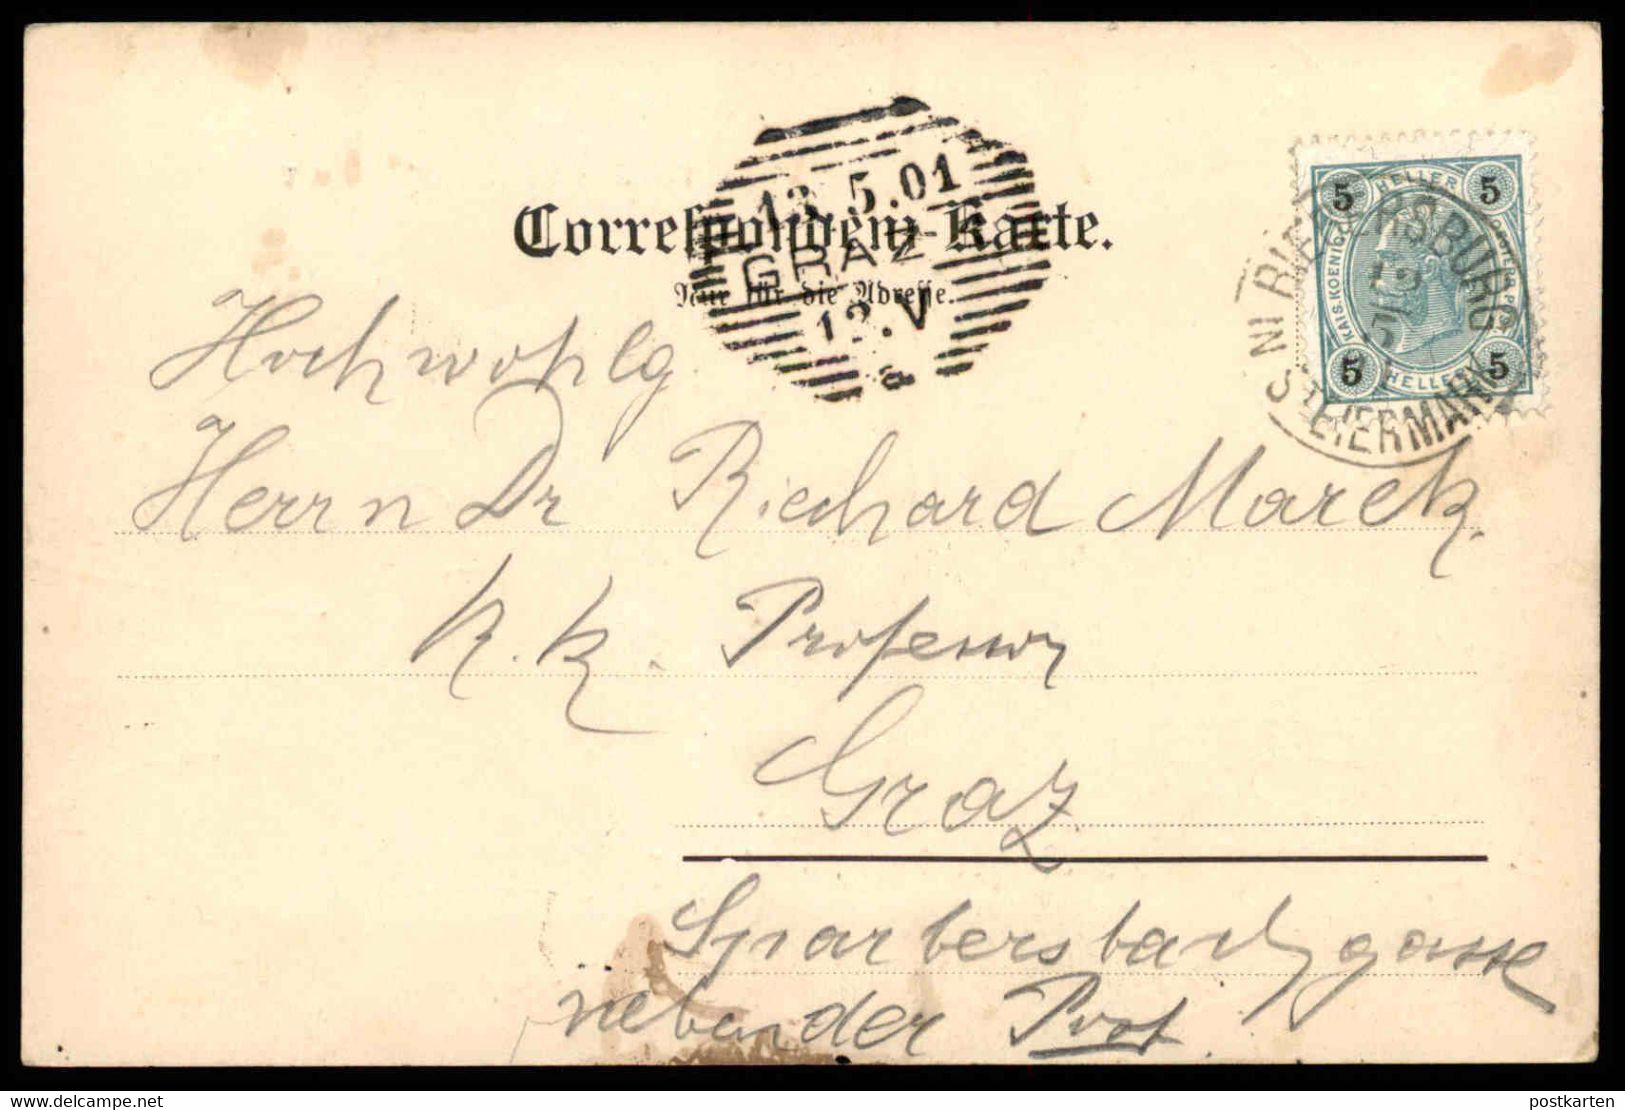 13.5.01
Correspondenz-Karte.
GRAZ
Nur für die Adresse.
12.V
5 HELLER 5
KAIS.KOENIGL.
5 HELLER 5
RIEGERSBURG
12 5
IN STEIERMARK
Hochwohlg
Herrn Dr Richard Marek.
k. k. Professor
Graz
Sparbersbachgasse
neben der Post
delcampe.net
postkarten